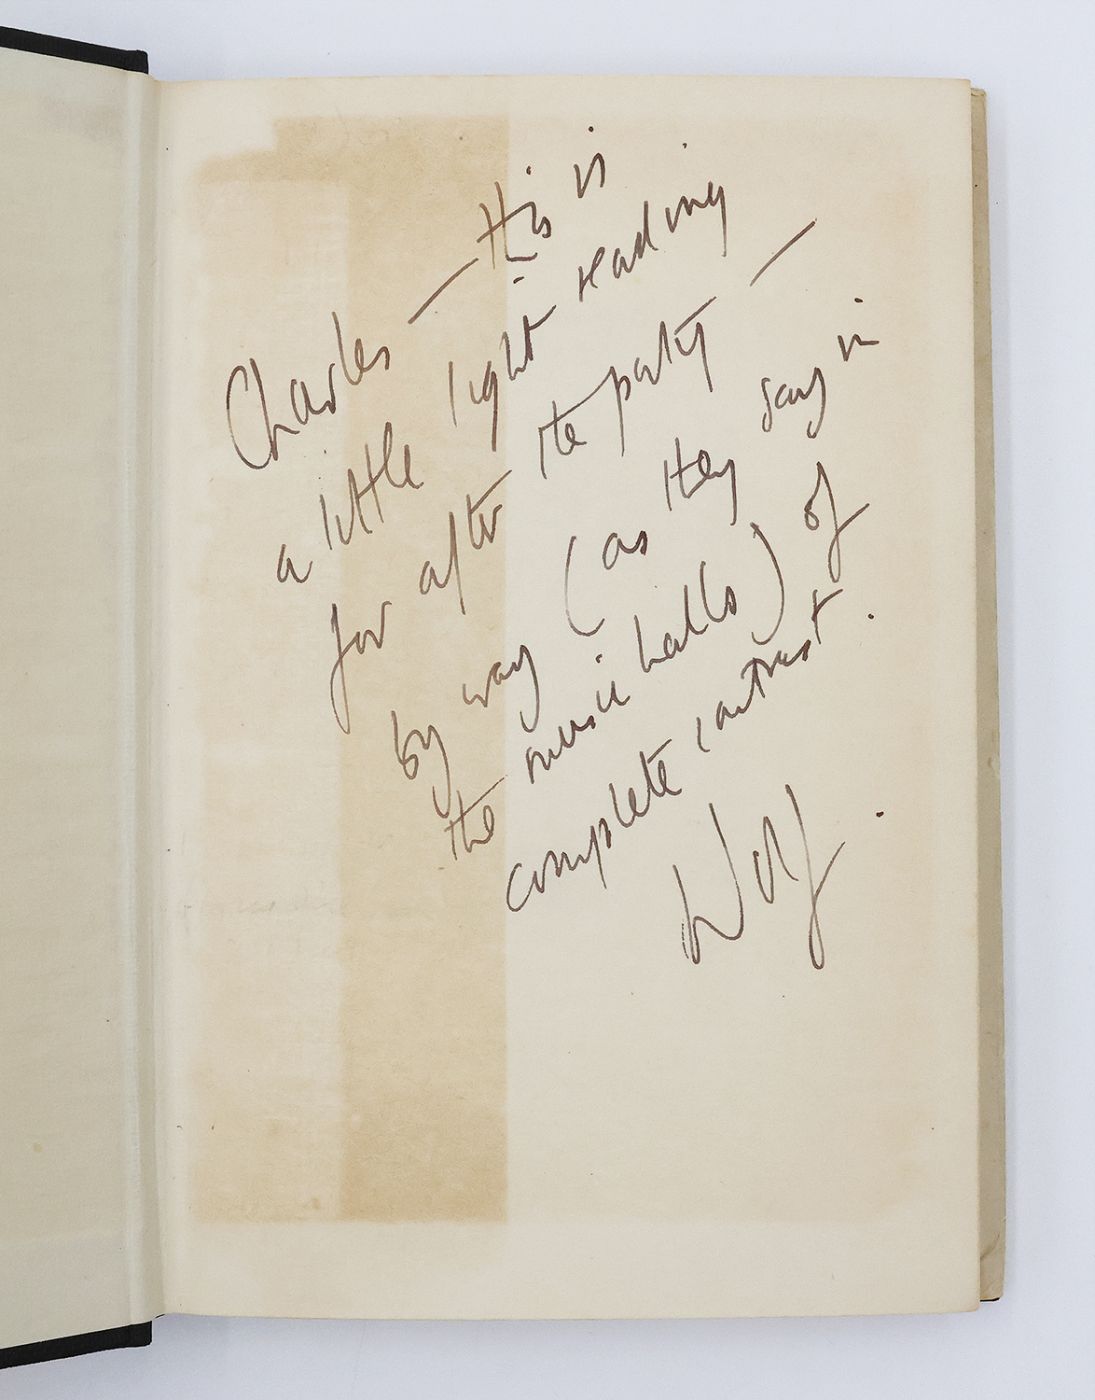 Charles — this is
a little light reading
for after the party —
by way (as they say in
the music halls) of
complete contrast.
Wolf.